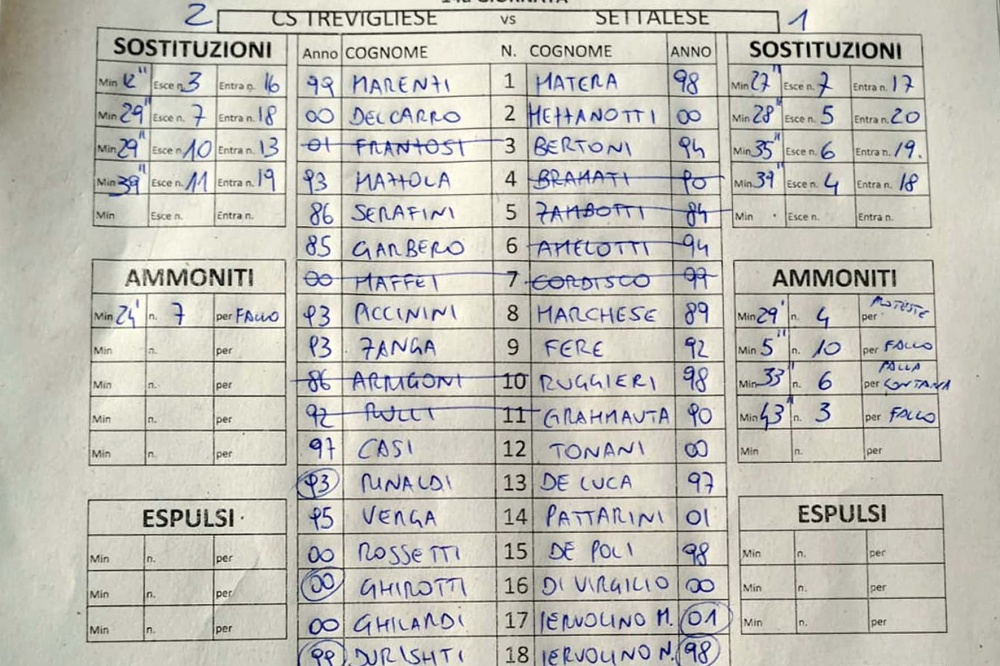 14a GIORNATA
2 CS TREVIGLIESE vs SETTALESE 1
SOSTITUZIONI Anno COGNOME N. COGNOME ANNO SOSTITUZIONI
Min 12" Esce n. 3 Entra n. 16 99 MARENZI 1 MATERA 98 Min 27" Esce n. 7 Entra n. 17
Min 29" Esce n. 7 Entra n. 18 00 DELCARRO 2 MEZZANOTTI 00 Min 28" Esce n. 5 Entra n. 20
Min 29" Esce n. 10 Entra n. 13 01 FRANZOSI 3 BERTONI 94 Min 35" Esce n. 6 Entra n. 19.
Min 39" Esce n. 11 Entra n. 19 93 MAZZOLA 4 BRAMATI 90 Min 39" Esce n. 4 Entra n. 18
Min Esce n. Entra n. 86 SERAFINI 5 ZAMBOTTI 84 Min Esce n. Entra n.
85 GARBERO 6 AMELOTTI 94
AMMONITI 00 MAFFEI 7 CORDISCO 99 AMMONITI
Min 24' n. 7 per FALLO 93 PICCININI 8 MARCHESE 89 Min 29' n. 4 per PROTESTE
Min n. per 93 ZANGA 9 FERE 92 Min 5" n. 10 per FALLO
Min n. per 86 ARRIGONI 10 RUGGIERI 98 Min 33" n. 6 per PALLA LONTANA
Min n. per 92 PULLI 11 GRAMMAUTA 90 Min 43" n. 3 per FALLO
Min n. per 97 CASI 12 TONANI 00 Min n. per
93 RINALDI 13 DE LUCA 97
ESPULSI 95 VERGA 14 PATTARINI 01 ESPULSI
Min n. per 00 ROSSETTI 15 DE POLI 98 Min n. per
Min n. per 00 GHIROTTI 16 DI VIRGILIO 00 Min n. per
Min n. per 00 GHILARDI 17 IERVOLINO M. 01 Min n. per
99 DURISHTI 18 IERVOLINO N. 98